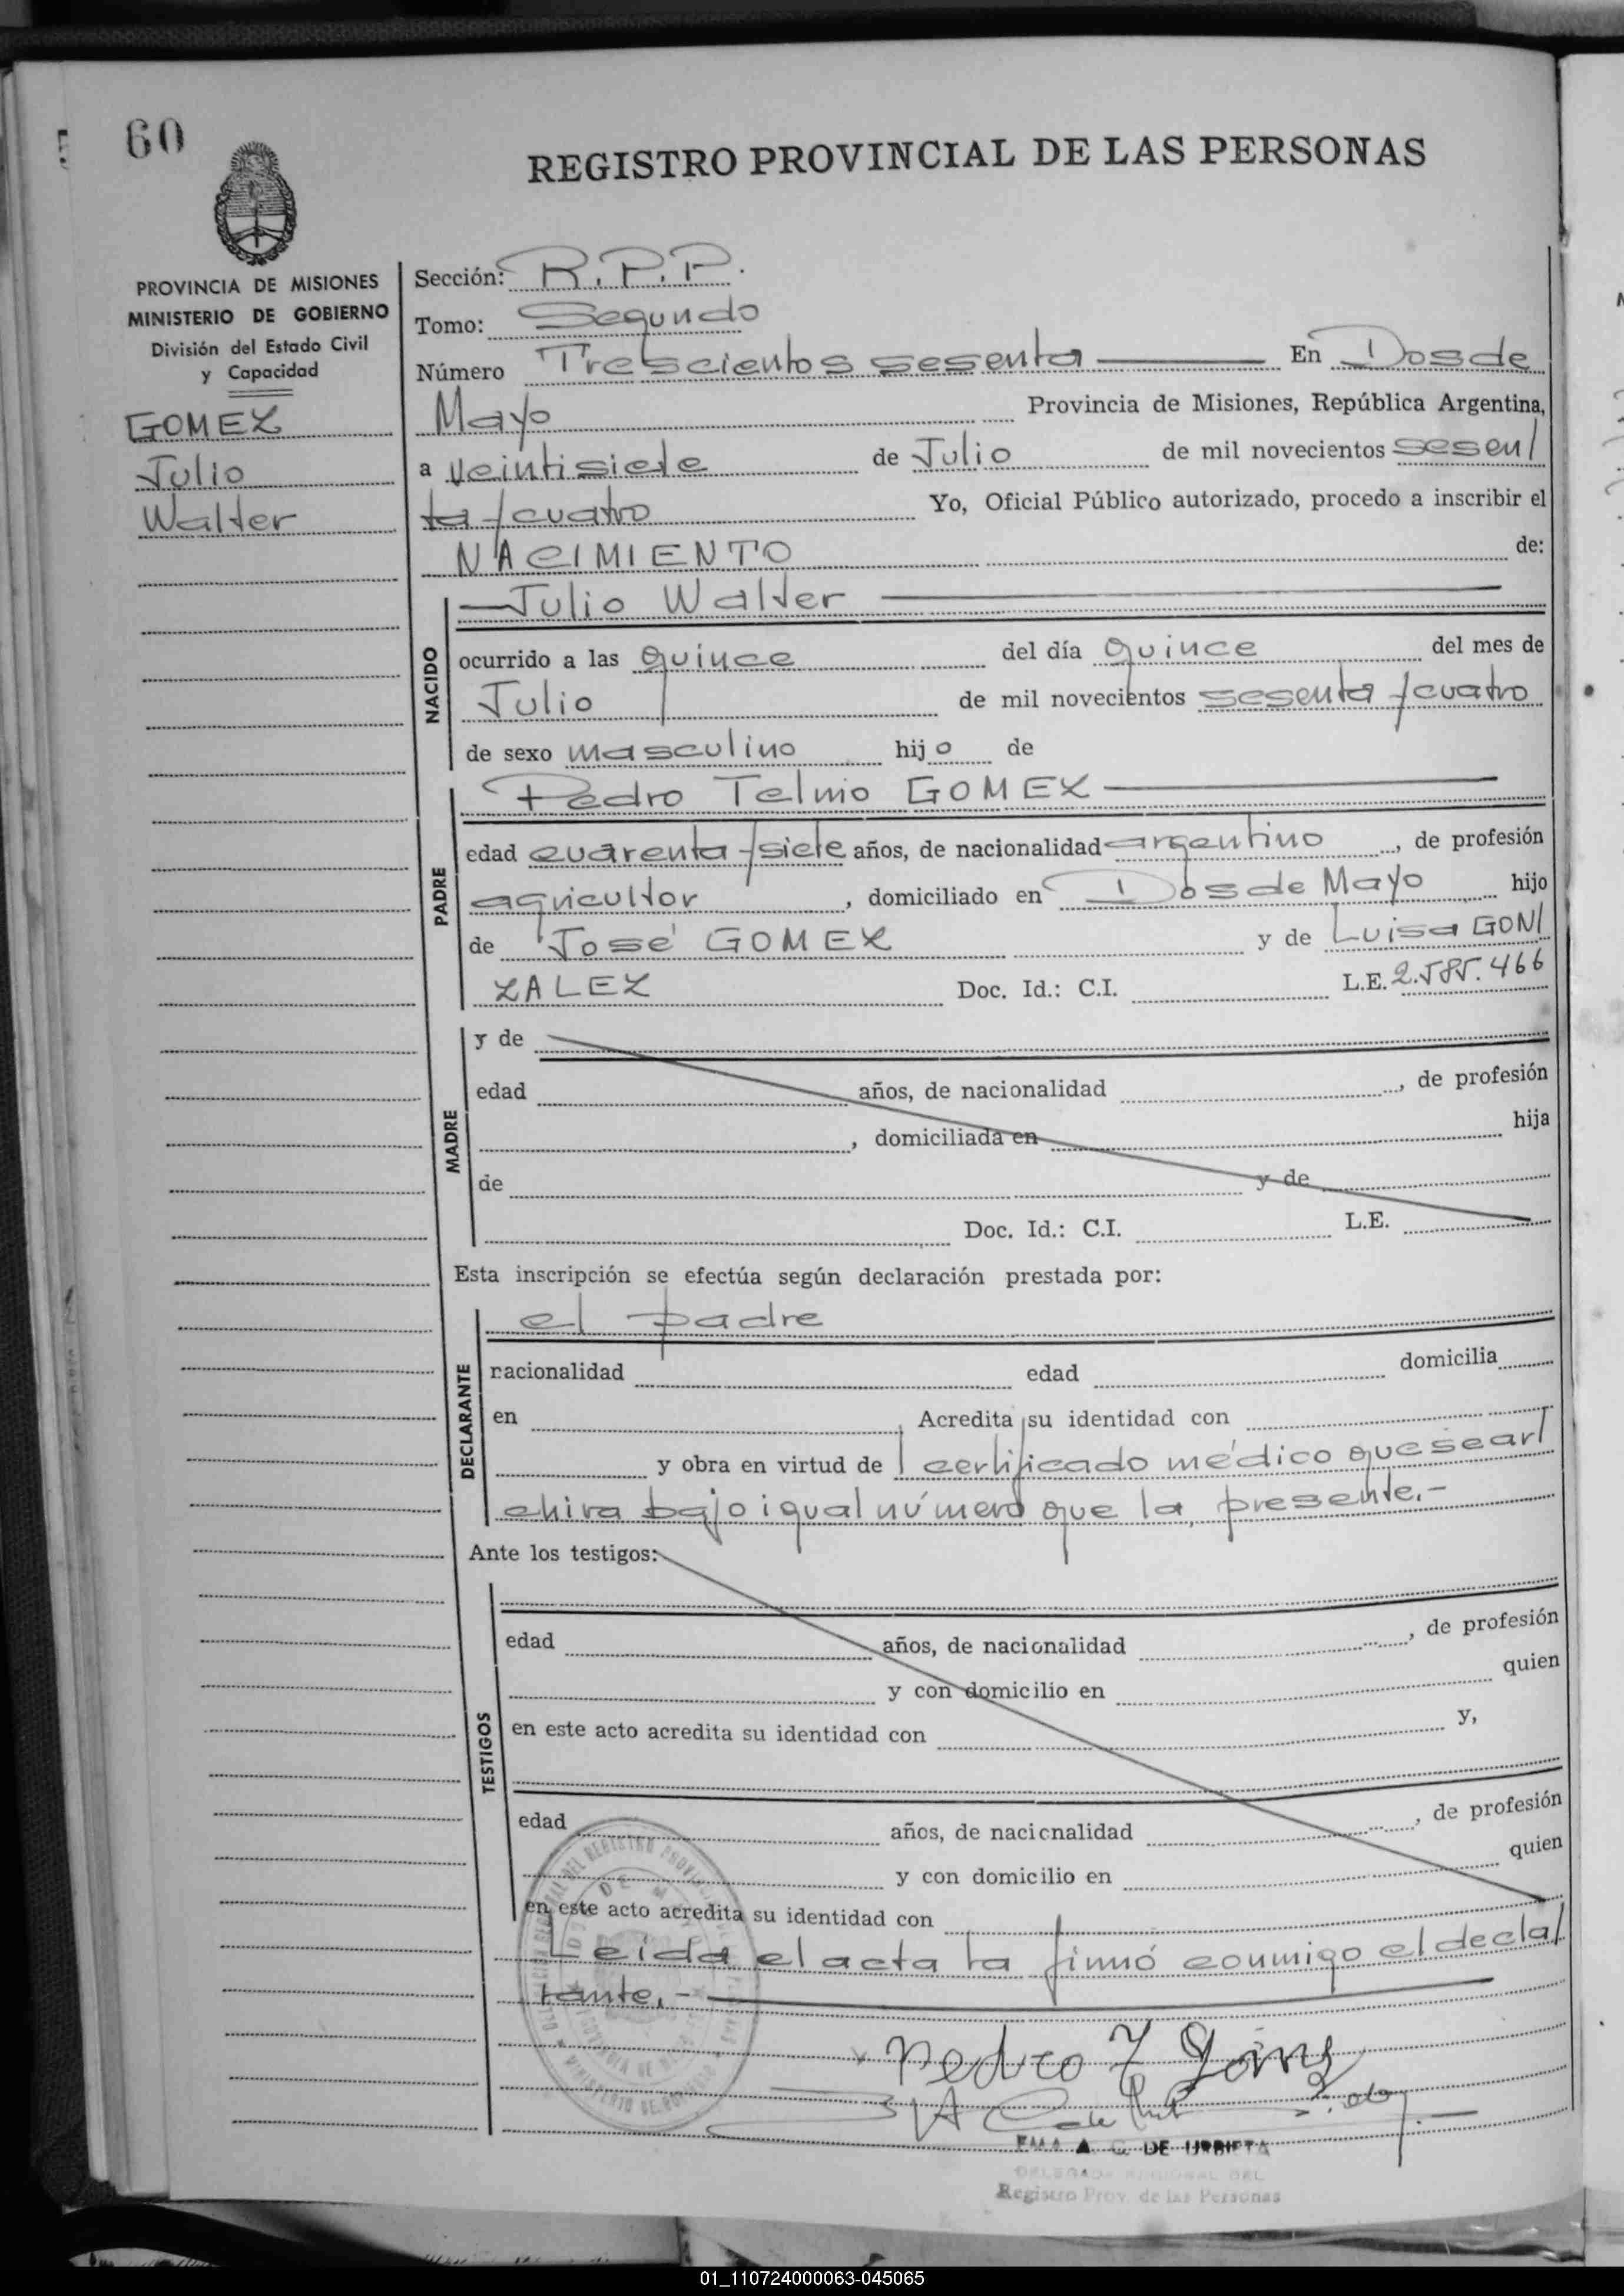 60
REGISTRO PROVINCIAL DE LAS PERSONAS
PROVINCIA DE MISIONES
MINISTERIO DE GOBIERNO
División del Estado Civil
y Capacidad
GOMEZ
Julio
Walter
Sección: R.P.P.
Tomo: Segundo
Número Trescientos sesenta En Dos de
Mayo Provincia de Misiones, República Argentina,
a veintisiete de Julio de mil novecientos sesen/
ta y cuatro Yo, Oficial Público autorizado, procedo a inscribir el
NACIMIENTO de:
NACIDO
Julio Walter
ocurrido a las quince del día quince del mes de
Julio de mil novecientos sesenta y cuatro
de sexo masculino hijo de
PADRE
Pedro Telmo GOMEZ
edad cuarenta y siete años, de nacionalidad argentino, de profesión
agricultor, domiciliado en Dos de Mayo hijo
de José GOMEZ y de Luisa GON/
ZALEZ Doc. Id.: C.I. L.E. 2.585.466
MADRE
y de
edad años, de nacionalidad , de profesión
, domiciliada en hija
de y de
Doc. Id.: C.I. L.E.
Esta inscripción se efectúa según declaración prestada por:
DECLARANTE
el padre
nacionalidad edad domicilia
en Acredita su identidad con
y obra en virtud de certificado médico que se ar/
chiva bajo igual número que la presente.-
Ante los testigos:
TESTIGOS
edad años, de nacionalidad , de profesión
y con domicilio en quien
en este acto acredita su identidad con y,
edad años, de nacionalidad , de profesión
y con domicilio en quien
en este acto acredita su identidad con
Leida el acta la firmó conmigo el decla/
rante.-
Pedro T Gomez
A. C. DE URBIETA
DELEGADA REGIONAL DEL
Registro Prov. de las Personas
01_110724000063-045065